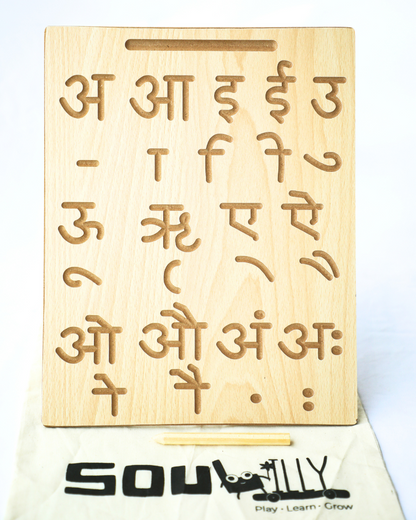 अ आ इ ई उ
- ा ि ी ु
ऊ ऋ ए ऐ
ू ृ े ै
ओ औ अं अः
ो ौ ं ः
SOULWILLY
Play · Learn · Grow